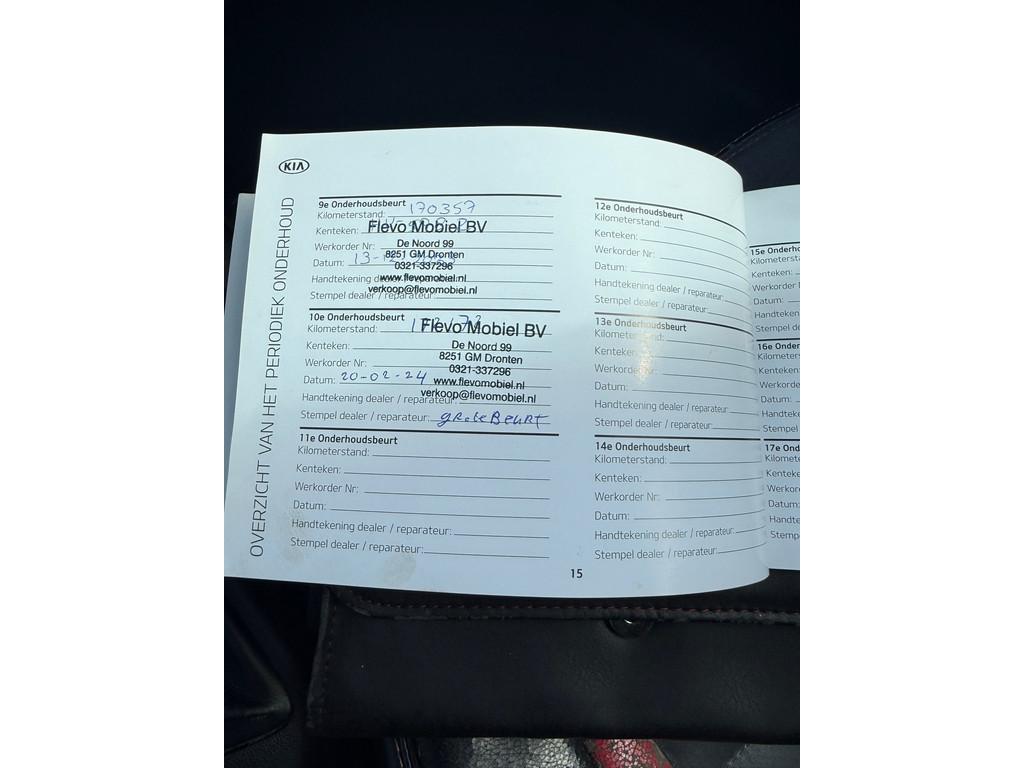 KIA
OVERZICHT VAN HET PERIODIEK ONDERHOUD
9e Onderhoudsbeurt
Kilometerstand: 170357
Kenteken:
Flevo Mobiel BV
Werkorder Nr:
De Noord 99
8251 GM Dronten
Datum: 13-12-
0321-337296
Handtekening dealer / reparateur:
www.flevomobiel.nl
Stempel dealer / reparateur:
verkoop@flevomobiel.nl
10e Onderhoudsbeurt
Kilometerstand:
Flevo Mobiel BV
Kenteken:
De Noord 99
8251 GM Dronten
Werkorder Nr:
0321-337296
Datum: 20-02-24
www.flevomobiel.nl
Handtekening dealer / reparateur:
verkoop@flevomobiel.nl
Stempel dealer / reparateur: grote Beurt
11e Onderhoudsbeurt
Kilometerstand:
Kenteken:
Werkorder Nr:
Datum:
Handtekening dealer / reparateur:
Stempel dealer / reparateur:
12e Onderhoudsbeurt
Kilometerstand:
Kenteken:
Werkorder Nr:
Datum:
Handtekening dealer / reparateur:
Stempel dealer / reparateur:
13e Onderhoudsbeurt
Kilometerstand:
Kenteken:
Werkorder Nr:
Datum:
Handtekening dealer / reparateur:
Stempel dealer / reparateur:
14e Onderhoudsbeurt
Kilometerstand:
Kenteken:
Werkorder Nr:
Datum:
Handtekening dealer / reparateur:
Stempel dealer / reparateur:
15
15e Onderho
Kilometersta
Kenteken:
Werkorder
Datum:
Handteken
Stempel de
16e Onder
Kilometer
Kenteken:
Werkorder
Datum:
Handteke
Stempel
17e Ond
Kilomete
Kenteke
Werkor
Datum:
Handte
Stemp